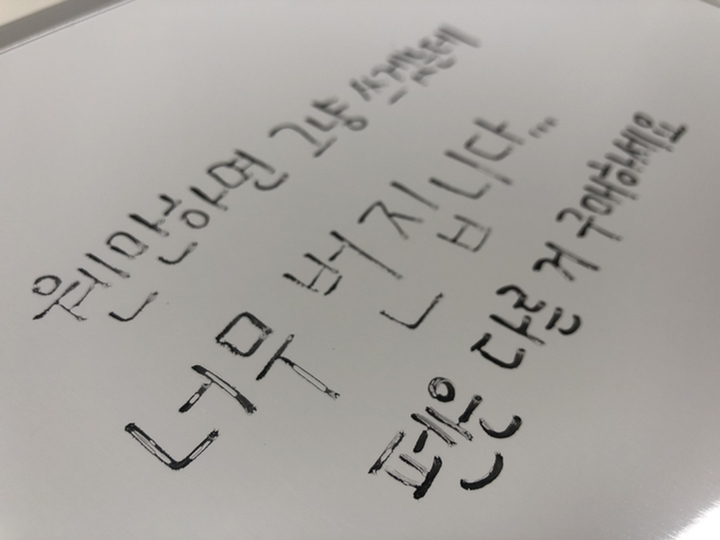 웬만하면 그냥 쓰겠는데
너무 번집니다...
펜은 다른 거 구매하세요